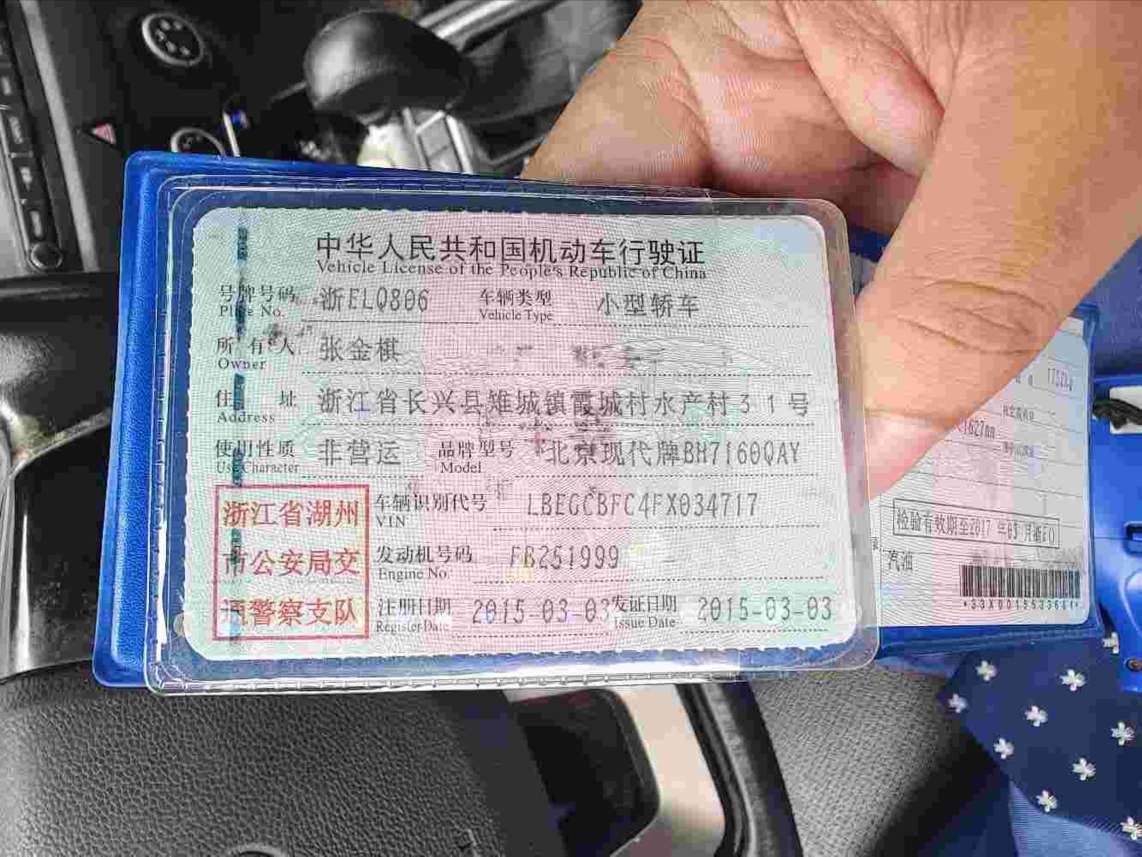 中华人民共和国机动车行驶证
Vehicle License of the People's Republic of China
号牌号码 浙ELQ806 车辆类型 小型轿车
Plate No. Vehicle Type
所有人 张金棋
Owner
住址 浙江省长兴县雉城镇霞城村水产村31号
Address
使用性质 非营运 品牌型号 北京现代牌BH7160QAY
Use Character Model
浙江省湖州
市公安局交
通警察支队
车辆识别代号 LBEGCBFC4FX034717
VIN
发动机号码 FB251999
Engine No.
注册日期 2015-03-03 发证日期 2015-03-03
Register Date Issue Date
检验有效期至2017年03月浙E()
汽油